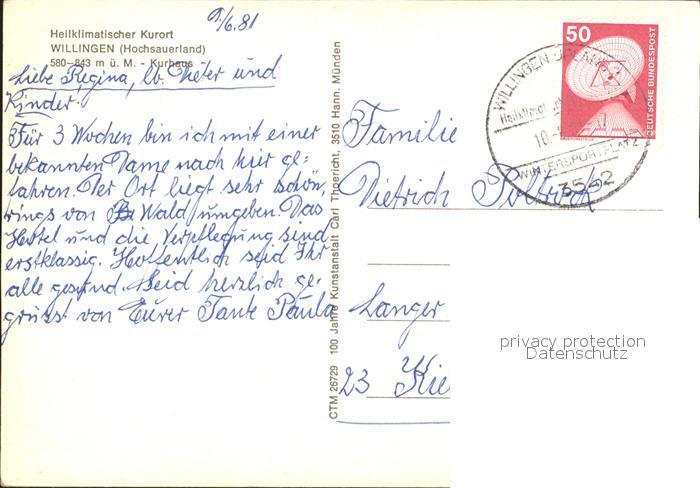 9/6.81
Heilklimatischer Kurort
WILLINGEN (Hochsauerland)
580–843 m ü. M. - Kurhaus
Liebe Regina, lb. Dieter und
Kinder.
Für 3 Wochen bin ich mit einer
bekannten Dame nach hier ge-
fahren. Der Ort liegt sehr schön,
rings von Wald umgeben. Das
Hotel und die Verpflegung sind
erstklassig. Hoffentlich seid Ihr
alle gesund. Seid herzlich ge-
grüsst von Eurer Tante Paula
CTM 26729 100 Jahre Kunstanstalt Carl Thoericht, 3510 Hann. Münden
50
DEUTSCHE BUNDESPOST
WILLINGEN
Heilklimat
10.
WINTERSPORTPLATZ
3542
Familie
Dietrich
Langer
23 Kie
privacy protection
Datenschutz